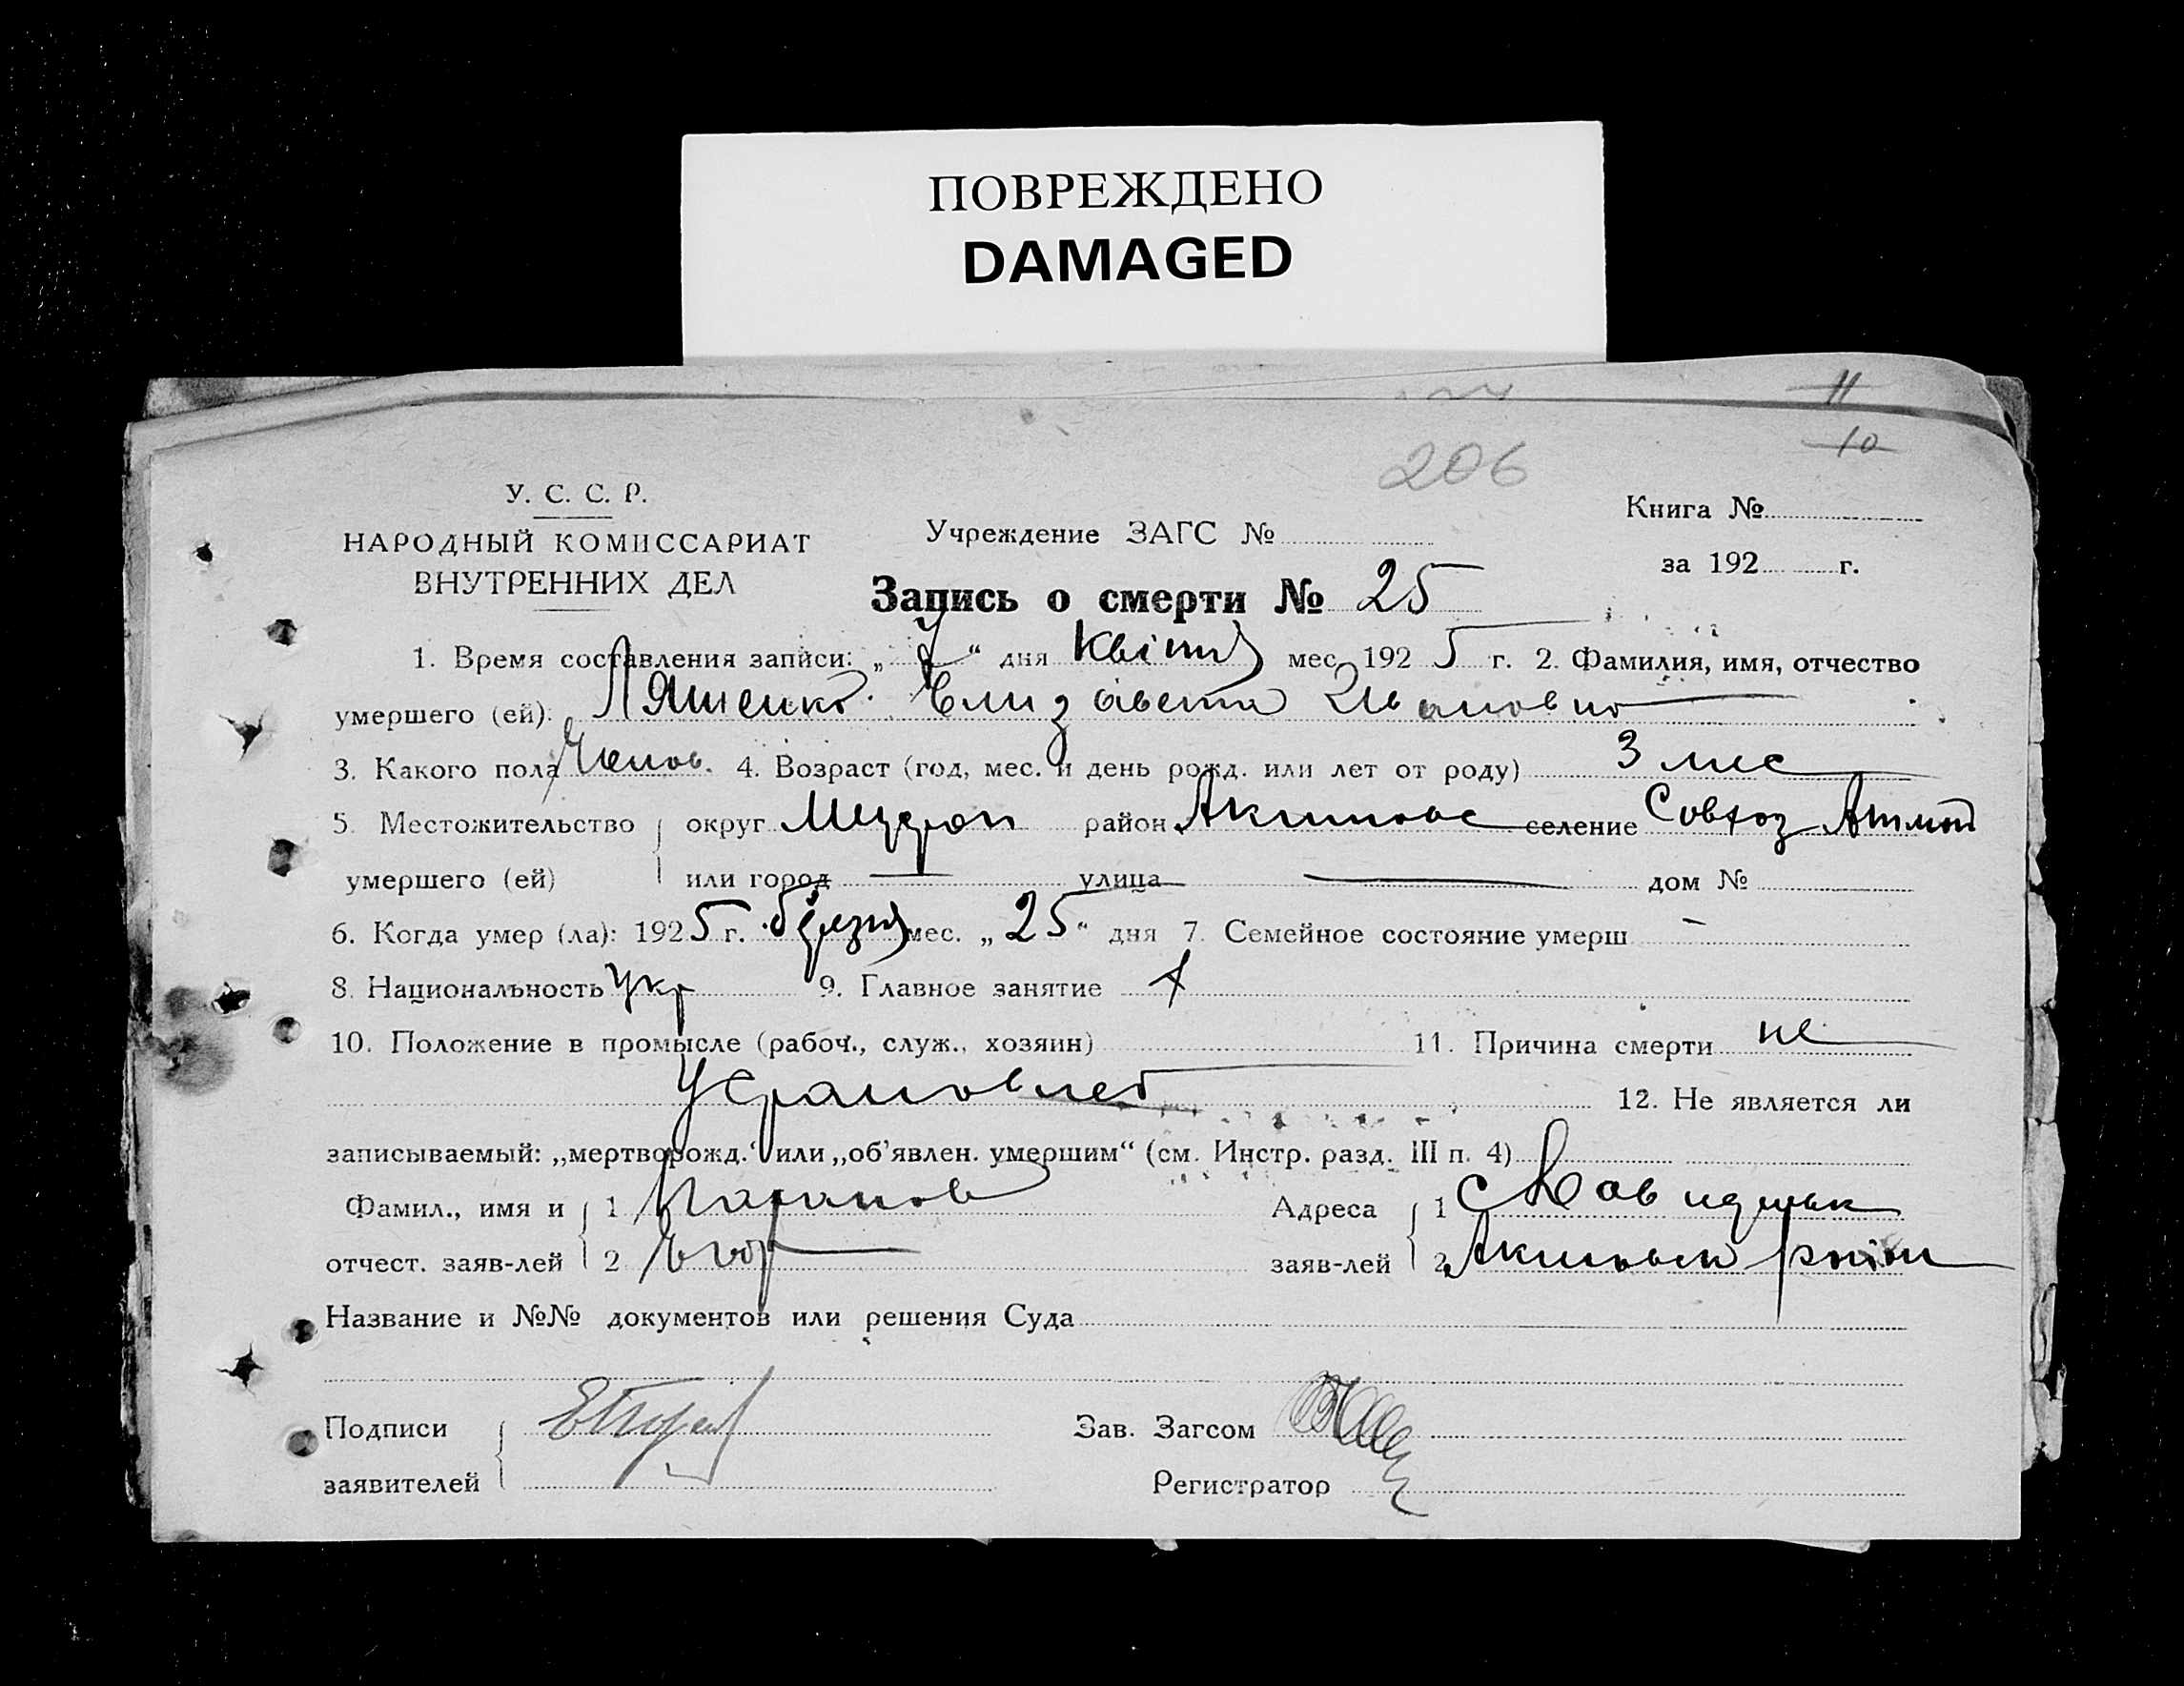 ПОВРЕЖДЕНО
DAMAGED
11
10
206
У. С. С. Р.
НАРОДНЫЙ КОМИССАРИАТ
ВНУТРЕННИХ ДЕЛ
Учреждение ЗАГС №
Книга №
за 192 г.
Запись о смерти № 25
1. Время составления записи: „ “ дня Квітня мес. 1925 г. 2. Фамилия, имя, отчество
умершего (ей): Ляшенко Елизавета Ивановно
3. Какого пола 4. Возраст (год, мес. и день рожд. или лет от роду) 3 мес
5. Местожительство округ район Акимовс селение Совхоз
умершего (ей) или город — улица — дом №
6. Когда умер (ла): 1925 г. березня мес. „25“ дня 7. Семейное состояние умерш –
8. Национальность Укр 9. Главное занятие
10. Положение в промысле (рабоч., служ., хозяин) 11. Причина смерти не
12. Не является ли
записываемый: „мертворожд.“ или „об'явлен. умершим“ (см. Инстр. разд. III п. 4)
Фамил., имя и 1 Адреса 1
отчест. заяв-лей 2 Егор заяв-лей 2
Название и №№ документов или решения Суда
Подписи Зав. Загсом
заявителей Регистратор